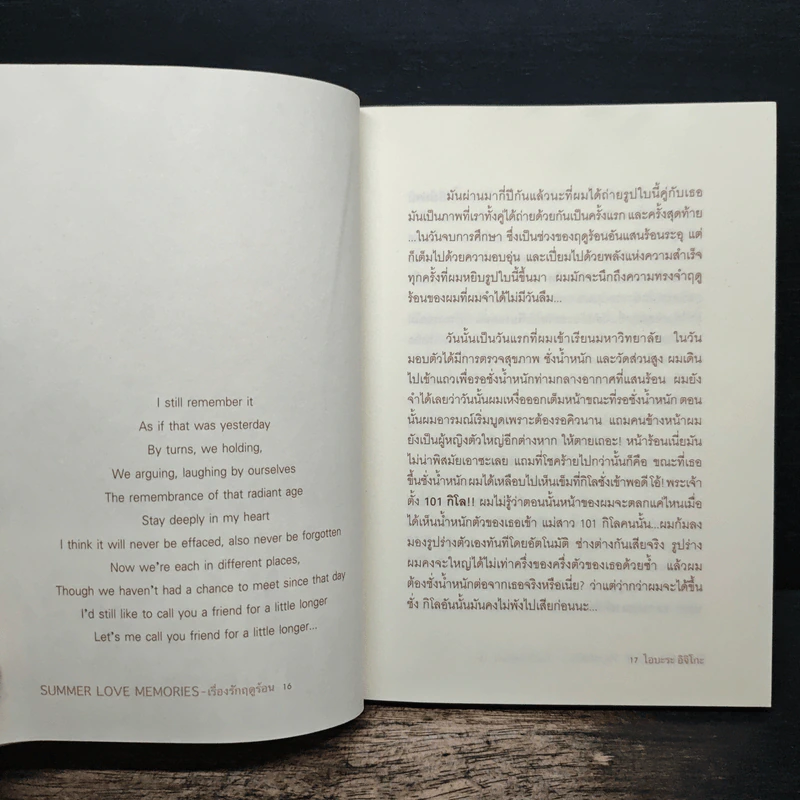 I still remember it
As if that was yesterday
By turns, we holding,
We arguing, laughing by ourselves
The remembrance of that radiant age
Stay deeply in my heart
I think it will never be effaced, also never be forgotten
Now we're each in different places,
Though we haven't had a chance to meet since that day
I'd still like to call you a friend for a little longer
Let's me call you friend for a little longer...
SUMMER LOVE MEMORIES-เรื่องรักฤดูร้อน 16
มันผ่านมากี่ปีกันแล้วนะที่ผมได้ถ่ายรูปใบนี้คู่กับเธอ
มันเป็นภาพที่เราทั้งคู่ได้ถ่ายด้วยกันเป็นครั้งแรก และครั้งสุดท้าย
...ในวันจบการศึกษา ซึ่งเป็นช่วงของฤดูร้อนอันแสนร้อนระอุ แต่
ก็เต็มไปด้วยความอบอุ่น และเปี่ยมไปด้วยพลังแห่งความสำเร็จ
ทุกครั้งที่ผมหยิบรูปใบนี้ขึ้นมา ผมมักจะนึกถึงความทรงจำฤดู
ร้อนของผมที่ผมจำได้ไม่มีวันลืม...
วันนั้นเป็นวันแรกที่ผมเข้าเรียนมหาวิทยาลัย ในวัน
มอบตัวได้มีการตรวจสุขภาพ ชั่งน้ำหนัก และวัดส่วนสูง ผมเดิน
ไปเข้าแถวเพื่อรอชั่งน้ำหนักท่ามกลางอากาศที่แสนร้อน ผมยัง
จำได้เลยว่าวันนั้นผมเหงื่อออกเต็มหน้าขณะที่รอชั่งน้ำหนัก ตอน
นั้นผมอารมณ์เริ่มบูดเพราะต้องรอคิวนาน แถมคนข้างหน้าผม
ยังเป็นผู้หญิงตัวใหญ่อีกต่างหาก ให้ตายเถอะ! หน้าร้อนเนี่ยมัน
ไม่น่าพิสมัยเอาซะเลย แถมที่โชคร้ายไปกว่านั้นก็คือ ขณะที่เธอ
ขึ้นชั่งน้ำหนัก ผมได้เหลือบไปเห็นเข็มที่กิโลชั่งเข้าพอดีโอ้! พระเจ้า
ตั้ง 101 กิโล!! ผมไม่รู้ว่าตอนนั้นหน้าของผมจะตลกแค่ไหนเมื่อ
ได้เห็นน้ำหนักตัวของเธอเข้า แม่สาว 101 กิโลคนนั้น...ผมก้มลง
มองรูปร่างตัวเองทันทีโดยอัตโนมัติ ช่างต่างกันเสียจริง รูปร่าง
ผมคงจะใหญ่ได้ไม่เท่าครึ่งของครึ่งตัวของเธอด้วยซ้ำ แล้วผม
ต้องชั่งน้ำหนักต่อจากเธอจริงหรือเนี่ย? ว่าแต่ว่ากว่าผมจะได้ขึ้น
ชั่ง กิโลอันนั้นมันคงไม่พังไปเสียก่อนนะ...
17 โอบะระ อิจิโกะ